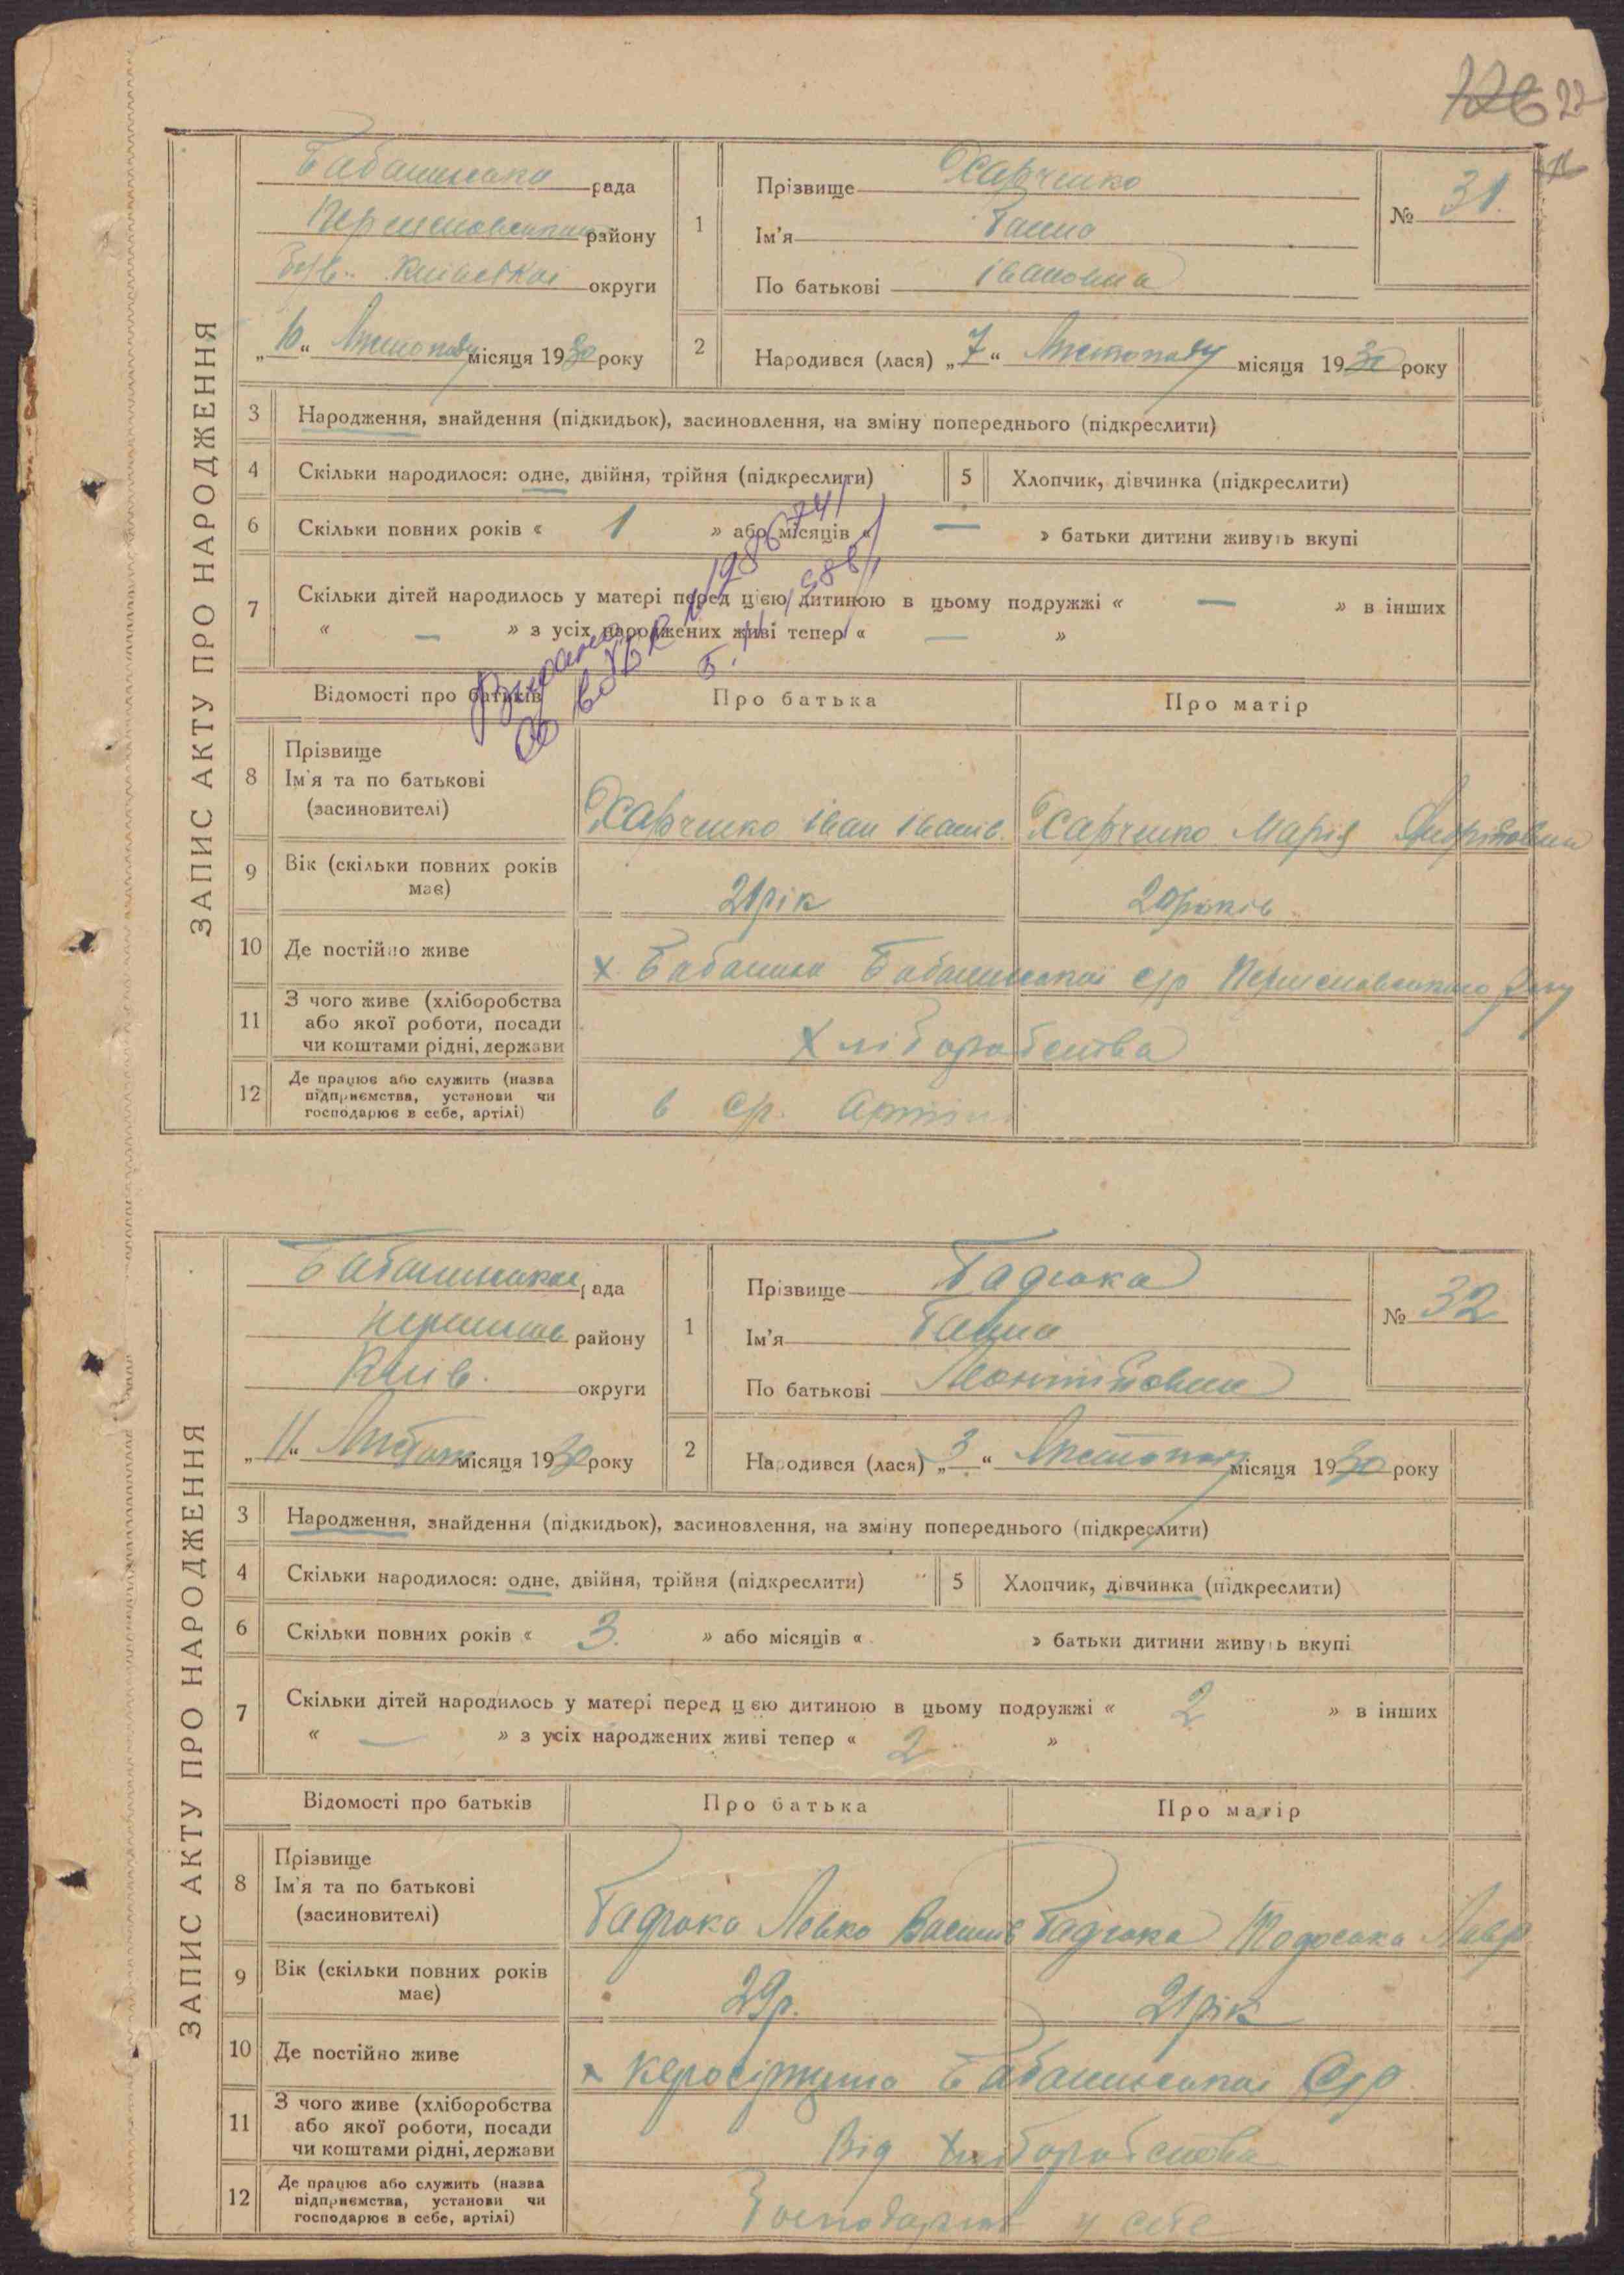 22
ЗАПИС АКТУ ПРО НАРОДЖЕННЯ
рада
району
Київської округи
„10“ Листопаду місяця 1930 року
1 Прізвище Харченко
Ім'я Ганна
По батькові Івановна
№ 31.
2 Народився (лася) „7“ Листопаду місяця 1930 року
3 Народження, знайдення (підкидьок), засиновлення, на зміну попереднього (підкреслити)
4 Скільки народилося: одне, двійня, трійня (підкреслити) 5 Хлопчик, дівчинка (підкреслити)
6 Скільки повних років « 1 » або місяців « — » батьки дитини живуть вкупі
7 Скільки дітей народилось у матері перед цією дитиною в цьому подружжі « — » в інших
« — » з усіх народжених живі тепер « — »
Відомості про батьків Про батька Про матір
8 Прізвище
Ім'я та по батькові
(засиновителі)
Харченко Іван Іванів. Харченко Марія
9 Вік (скільки повних років
має)
21 рік 20 років
10 Де постійно живе
х. Бабанка Бабанської с/р
11 З чого живе (хліборобства
або якої роботи, посади
чи коштами рідні, держави
Хліборобства
12 Де працює або служить (назва
підприємства, установи чи
господарює в себе, артілі)
в с/г. Артіли
ЗАПИС АКТУ ПРО НАРОДЖЕННЯ
рада
району
Київ. округи
„11“ місяця 1930 року
1 Прізвище Гадюка
Ім'я Ганна
По батькові
№ 32
2 Народився (лася) „3“ Листопаду місяця 1930 року
3 Народження, знайдення (підкидьок), засиновлення, на зміну попереднього (підкреслити)
4 Скільки народилося: одне, двійня, трійня (підкреслити) 5 Хлопчик, дівчинка (підкреслити)
6 Скільки повних років « 3. » або місяців « » батьки дитини живуть вкупі
7 Скільки дітей народилось у матері перед цією дитиною в цьому подружжі « 2 » в інших
« — » з усіх народжених живі тепер « 2 »
Відомості про батьків Про батька Про матір
8 Прізвище
Ім'я та по батькові
(засиновителі)
Гадюка Левко Васил Гадюка Тодоска Лавр
9 Вік (скільки повних років
має)
29р. 21 рік
10 Де постійно живе
х С/р
11 З чого живе (хліборобства
або якої роботи, посади
чи коштами рідні, держави
Від хліборобства
12 Де працює або служить (назва
підприємства, установи чи
господарює в себе, артілі)
Господарює у себе